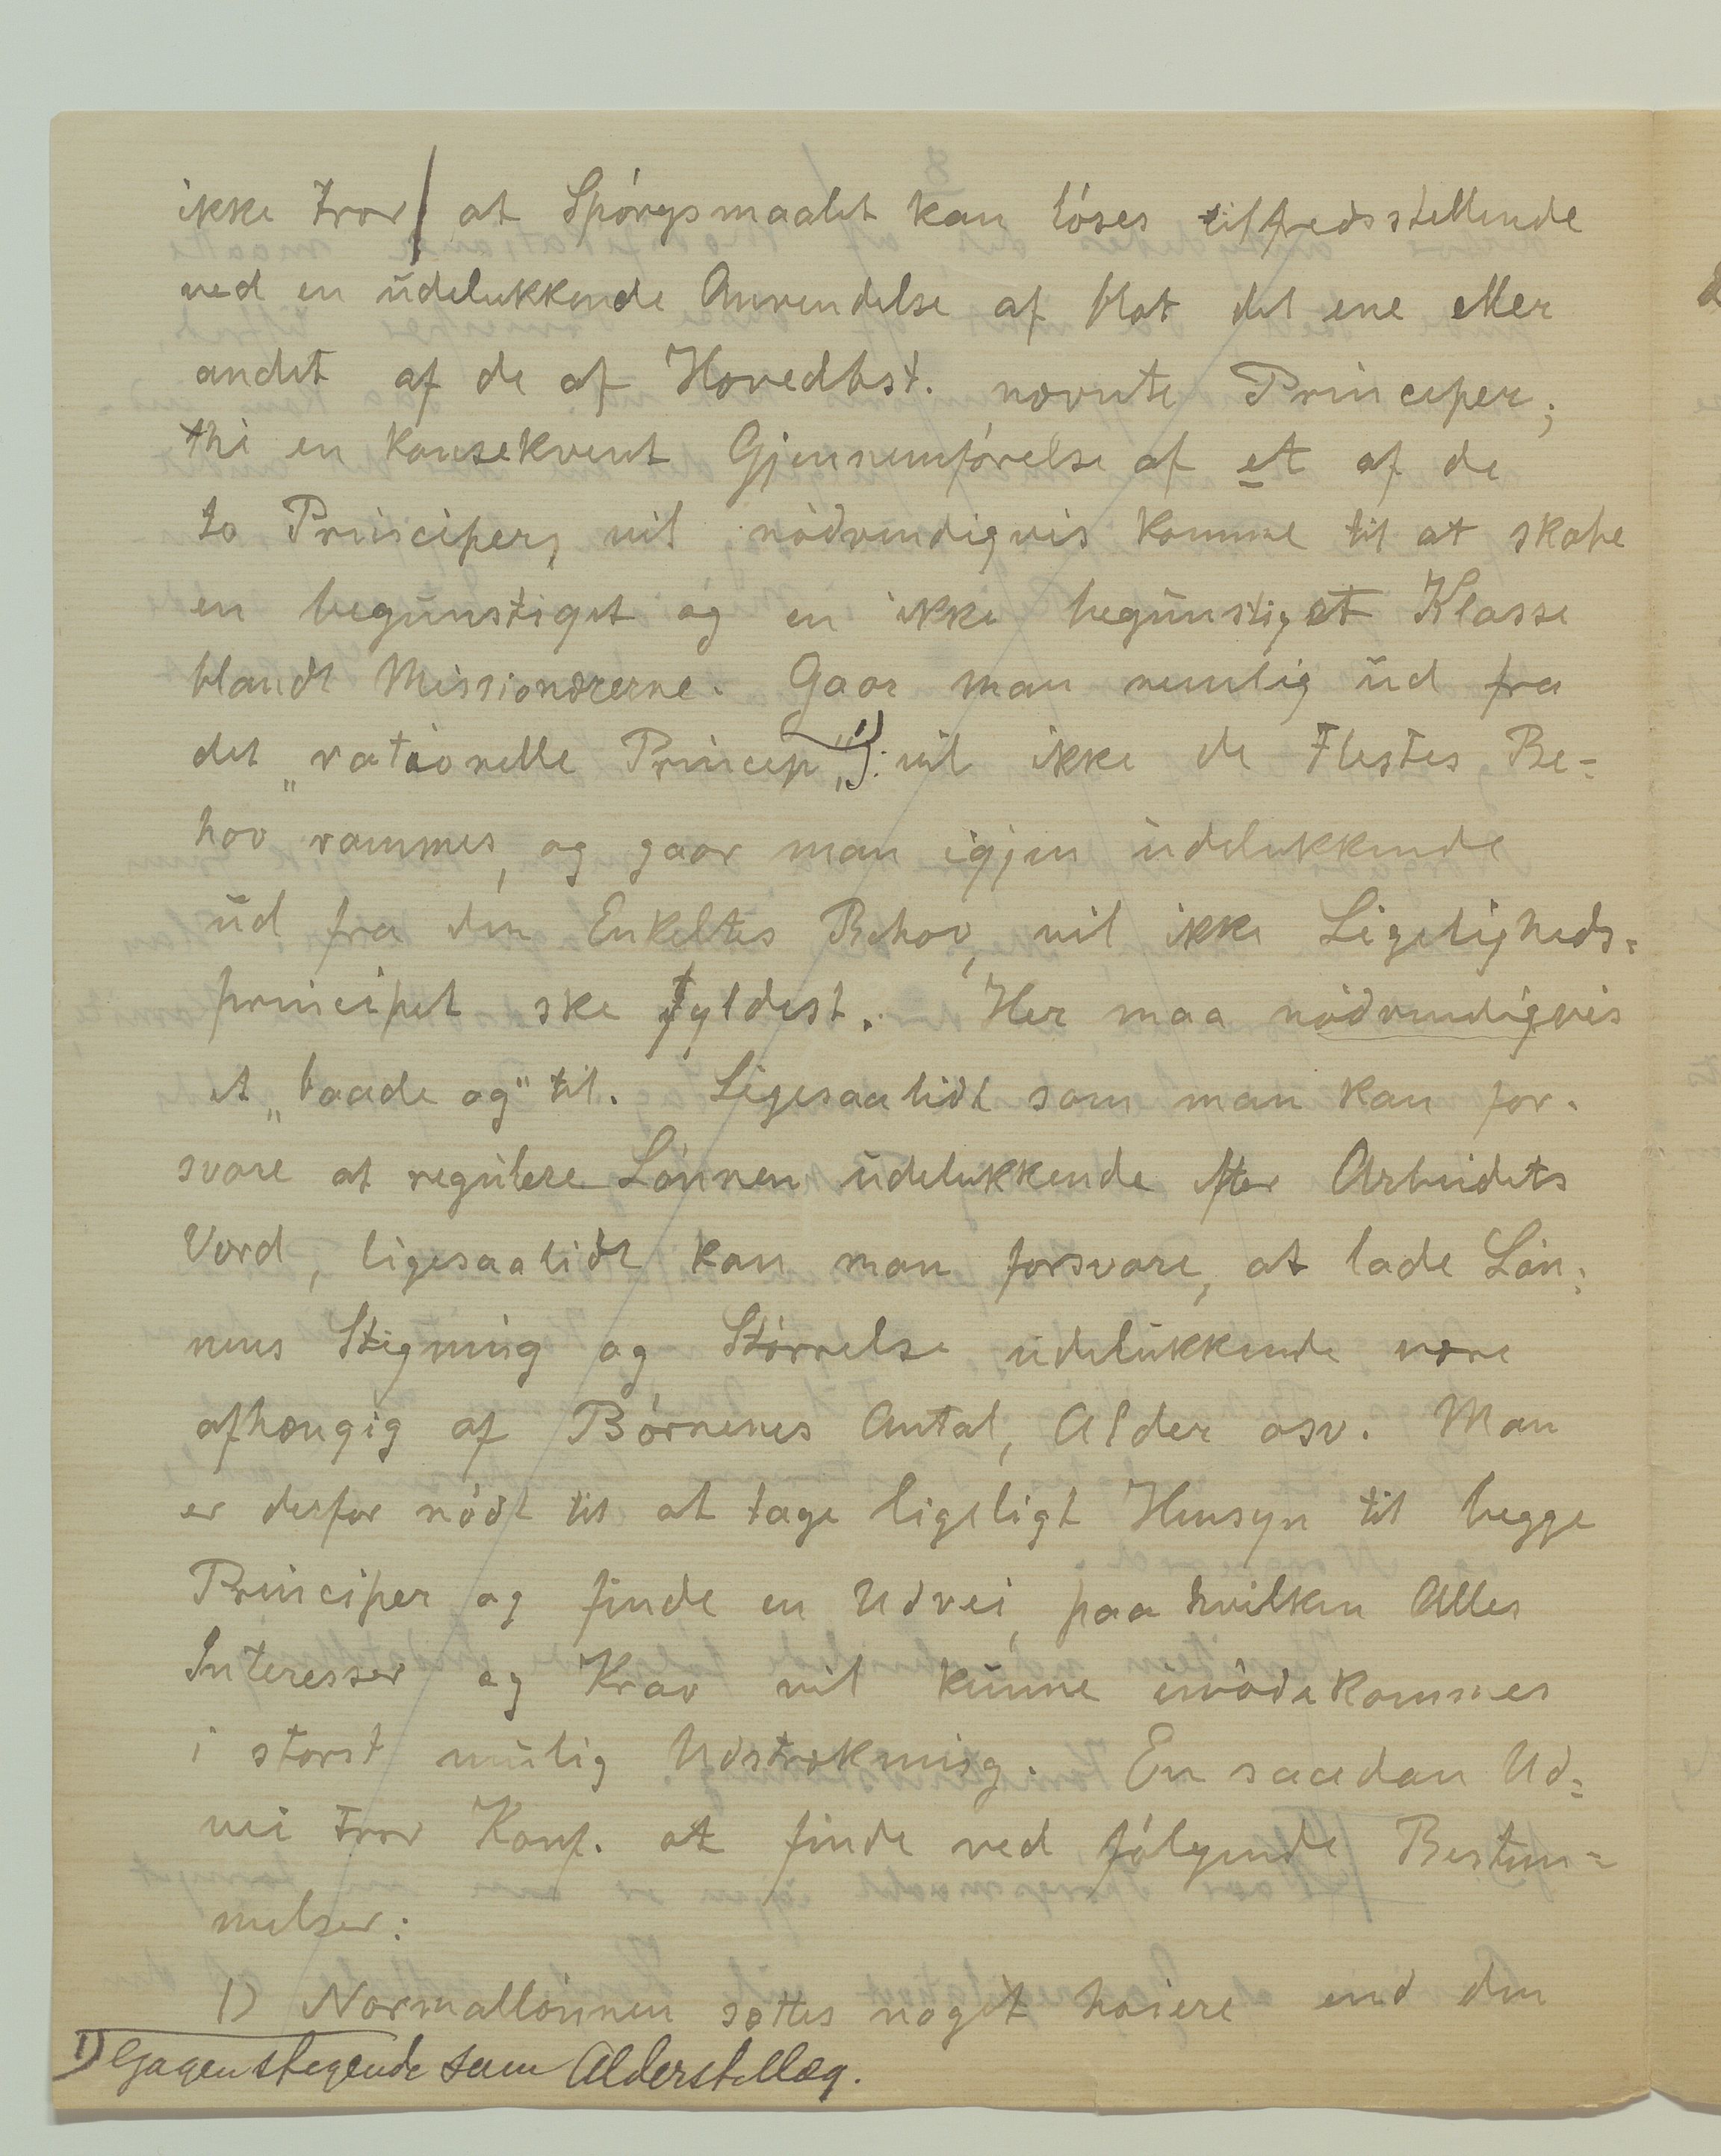 ikke tror at Spórgsmaalet kan lóses tilfredsstillende
ved en udelukkende Anvendelse af blot det ene eller
andet af de af Hovedbst. nævnte Principer;
thi en konsekvent Gjennemfórelse af et af de
to Principer, vil nódvendigvis komme til at skabe
en begunstiget og en ikke begunstiget Klasse
blandt Missionærerne. Gaar man nemlig ud fra
det „rationelle Princip„ 1) vil ikke de Flestes Be-
hov rammes, og gaar man igjen udelukkende
ud fra den Enkeltes Behov, vil ikke Ligeligheds-
principet ske fyldest. Her maa nódvendigvis
et „baade og" til. Ligesaalidt som man kan for-
svare at regulere Lónnen udelukkende efter Arbeidets
Værd, ligesaalidt kan man forsvare, at lade Lón-
nens Stigning og Stórrelse udelukkende være
afhængig af Bórnenes Antal, Alder osv. Man
er derfor nódt til at tage ligeligt Hensyn til begge
Principer og finde en Udvei, paa hvilken Alles
Interesser og Krav vil kunne imódekommes
i storst mulig Udstrækning. En saadan Ud-
vei tror Konf. at finde ved fólgende Bestem-
melser:
1) Normallónnen sættes noget hóiere end den
1) Gagen stegende som Alderstillæg.